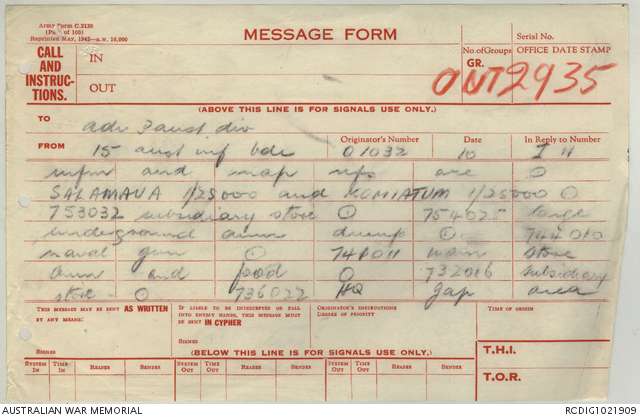 Army Form C.2136
(Pads of 100)
Reprinted May, 1942—a.w. 10,000
MESSAGE FORM
Serial No.
CALL AND INSTRUC-TIONS.
IN
OUT
No. of Groups
GR.
OFFICE DATE STAMP
OUT 2935
(ABOVE THIS LINE IS FOR SIGNALS USE ONLY.)
TO
adv 3 aust div
Originator's Number
Date
In Reply to Number
FROM
15 aust inf bde
O1032
10
I 4
infm and map refs are
SALAMAUA 1/25000 and KOMIATUM 1/25000
753032 subsidiary store 754025 large
underground amn dump 744010
naval gun 741011 main store
amn and food 732016 subsidiary
store 736022 HQ Jap area
THIS MESSAGE MAY BE SENT AS WRITTEN BY ANY MEANS.
SIGNED
IF LIABLE TO BE INTERCEPTED OR FALL INTO ENEMY HANDS, THIS MESSAGE MUST BE SENT IN CIPHER
SIGNED
ORIGINATOR'S INSTRUCTIONS
DEGREE OF PRIORITY
TIME OF ORIGIN
(BELOW THIS LINE IS FOR SIGNALS USE ONLY.)
T.H.I.
T.O.R.
SYSTEM IN
TIME IN
READER
SENDER
SYSTEM OUT
TIME OUT
READER
SENDER
SYSTEM OUT
TIME OUT
READER
SENDER
AUSTRALIAN WAR MEMORIAL
RCDIG1021909